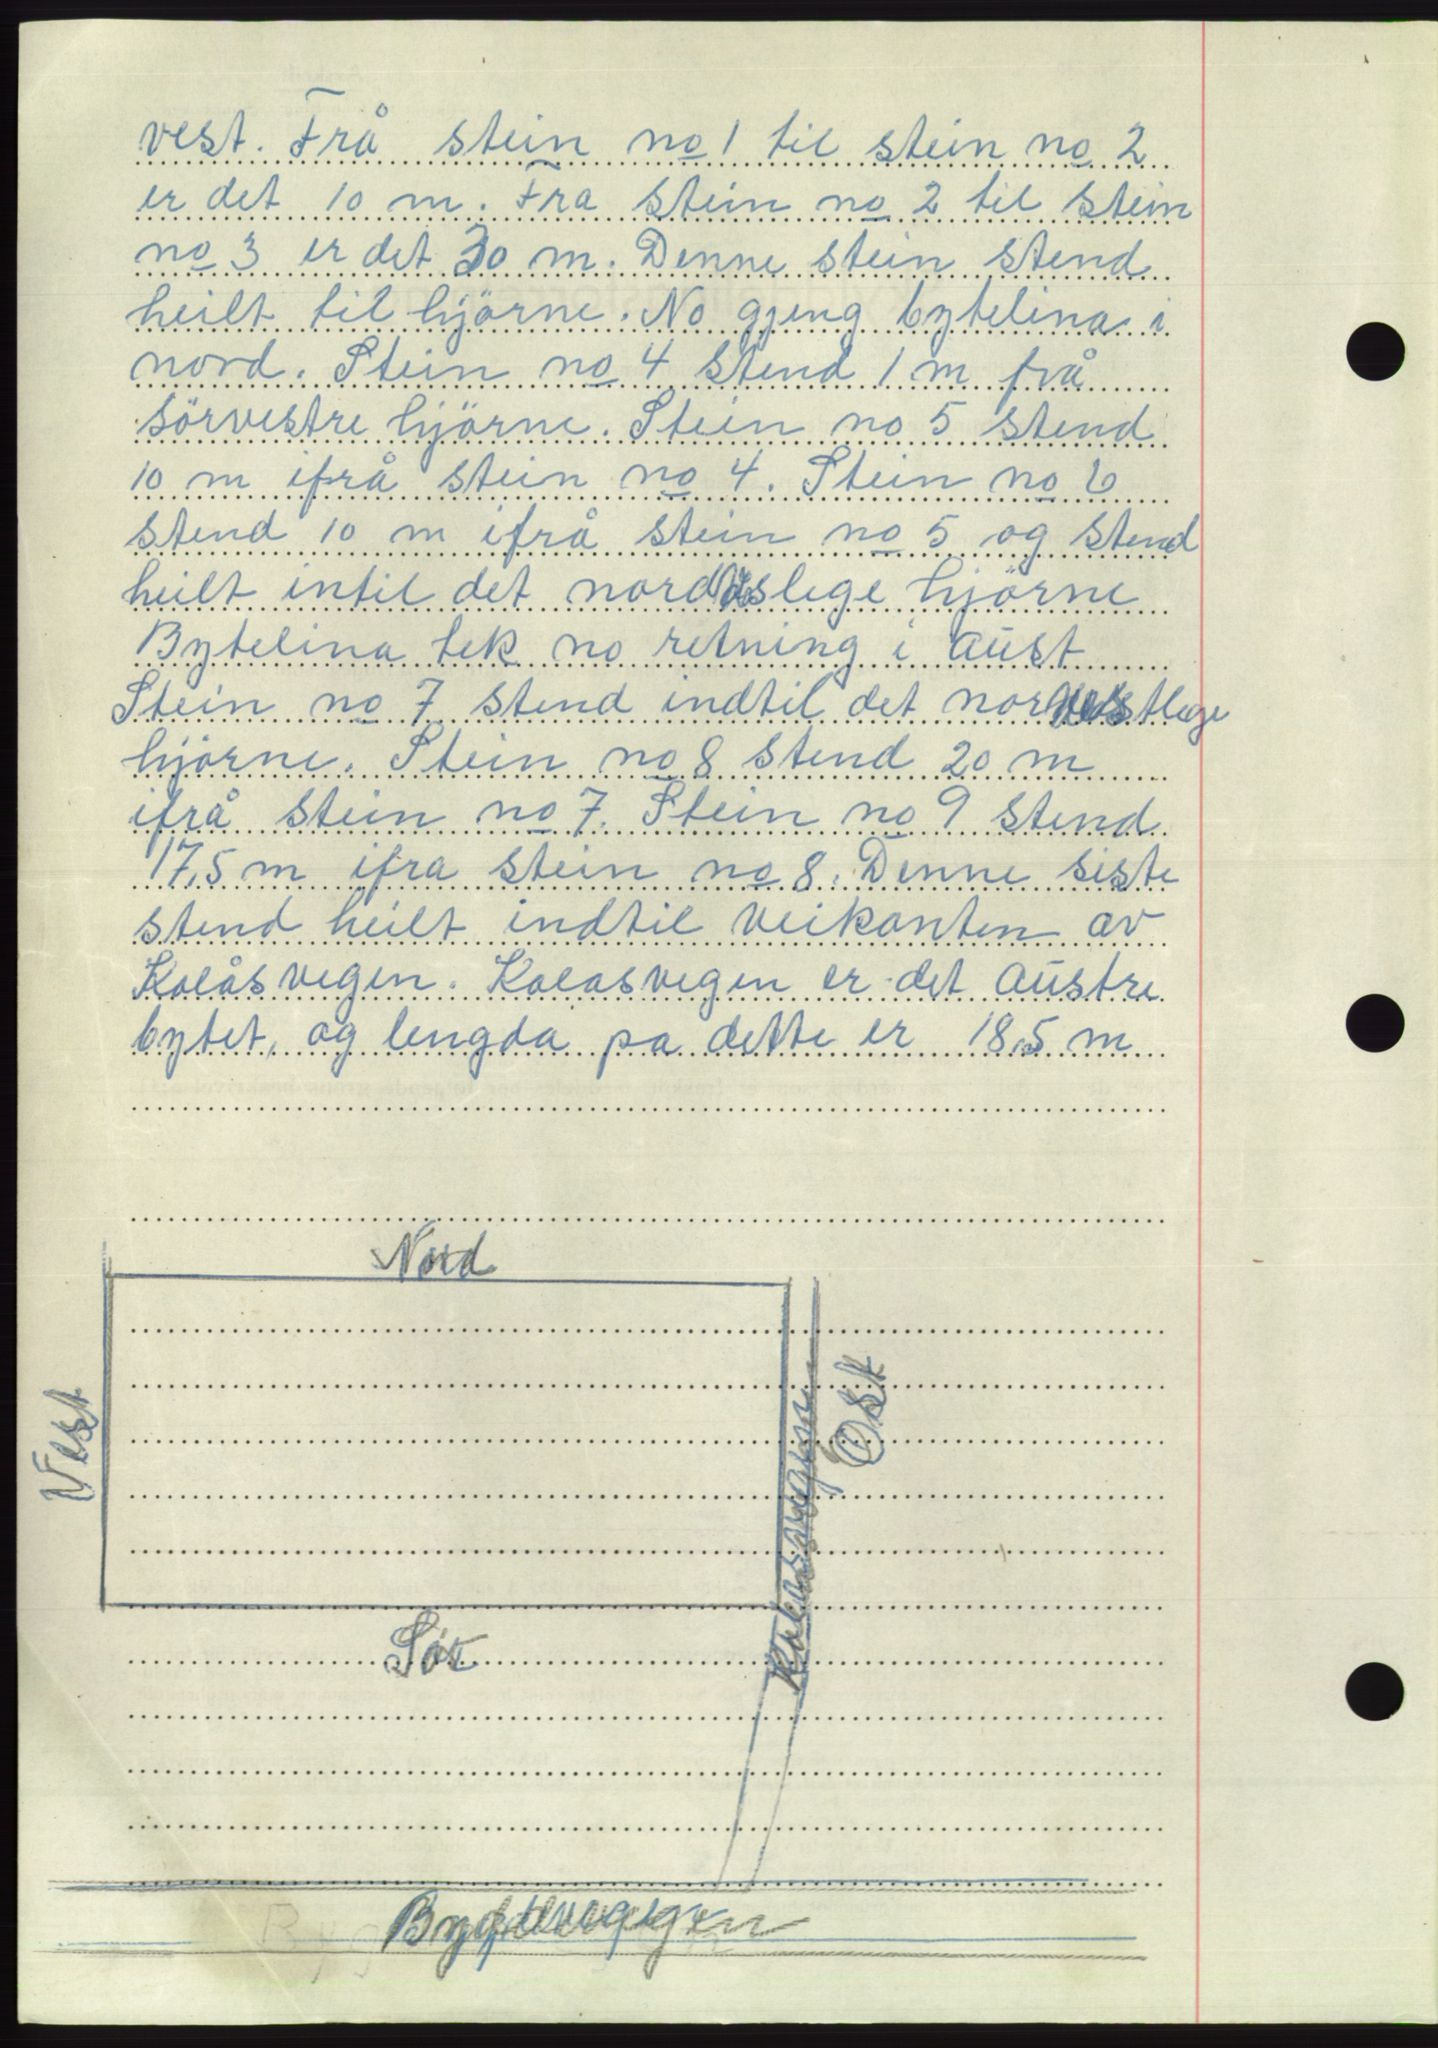 vest. Frå stein no 1 til stein no 2
er det 10 m. Fra stein no 2 til stein
no 3 er det 30 m. Denne stein stend
heilt til hjörne. No gjeng bytelina i
nord. Stein no 4 stend 1 m frå
sörvestre hjörne. Stein no 5 stend
10 m ifrå stein no 4. Stein no 6
stend 10 m ifrå stein no 5 og stend
heilt intil det hjörne
Bytelina tek no retning i aust
Stein no 7 stend indtil det nordvestlege
hjörne. Stein no 8 stend 20 m
ifrå stein no 7. Stein no 9 stend
17,5 m ifra stein no 8. Denne siste
stend heilt indtil veikanten av
Kolåsvegen. Kolasvegen er det austre
bytet, og lengda pa dette er 18,5 m
Nord
Vest
Øst
Kolasvegen
Sør
Bygdevegen